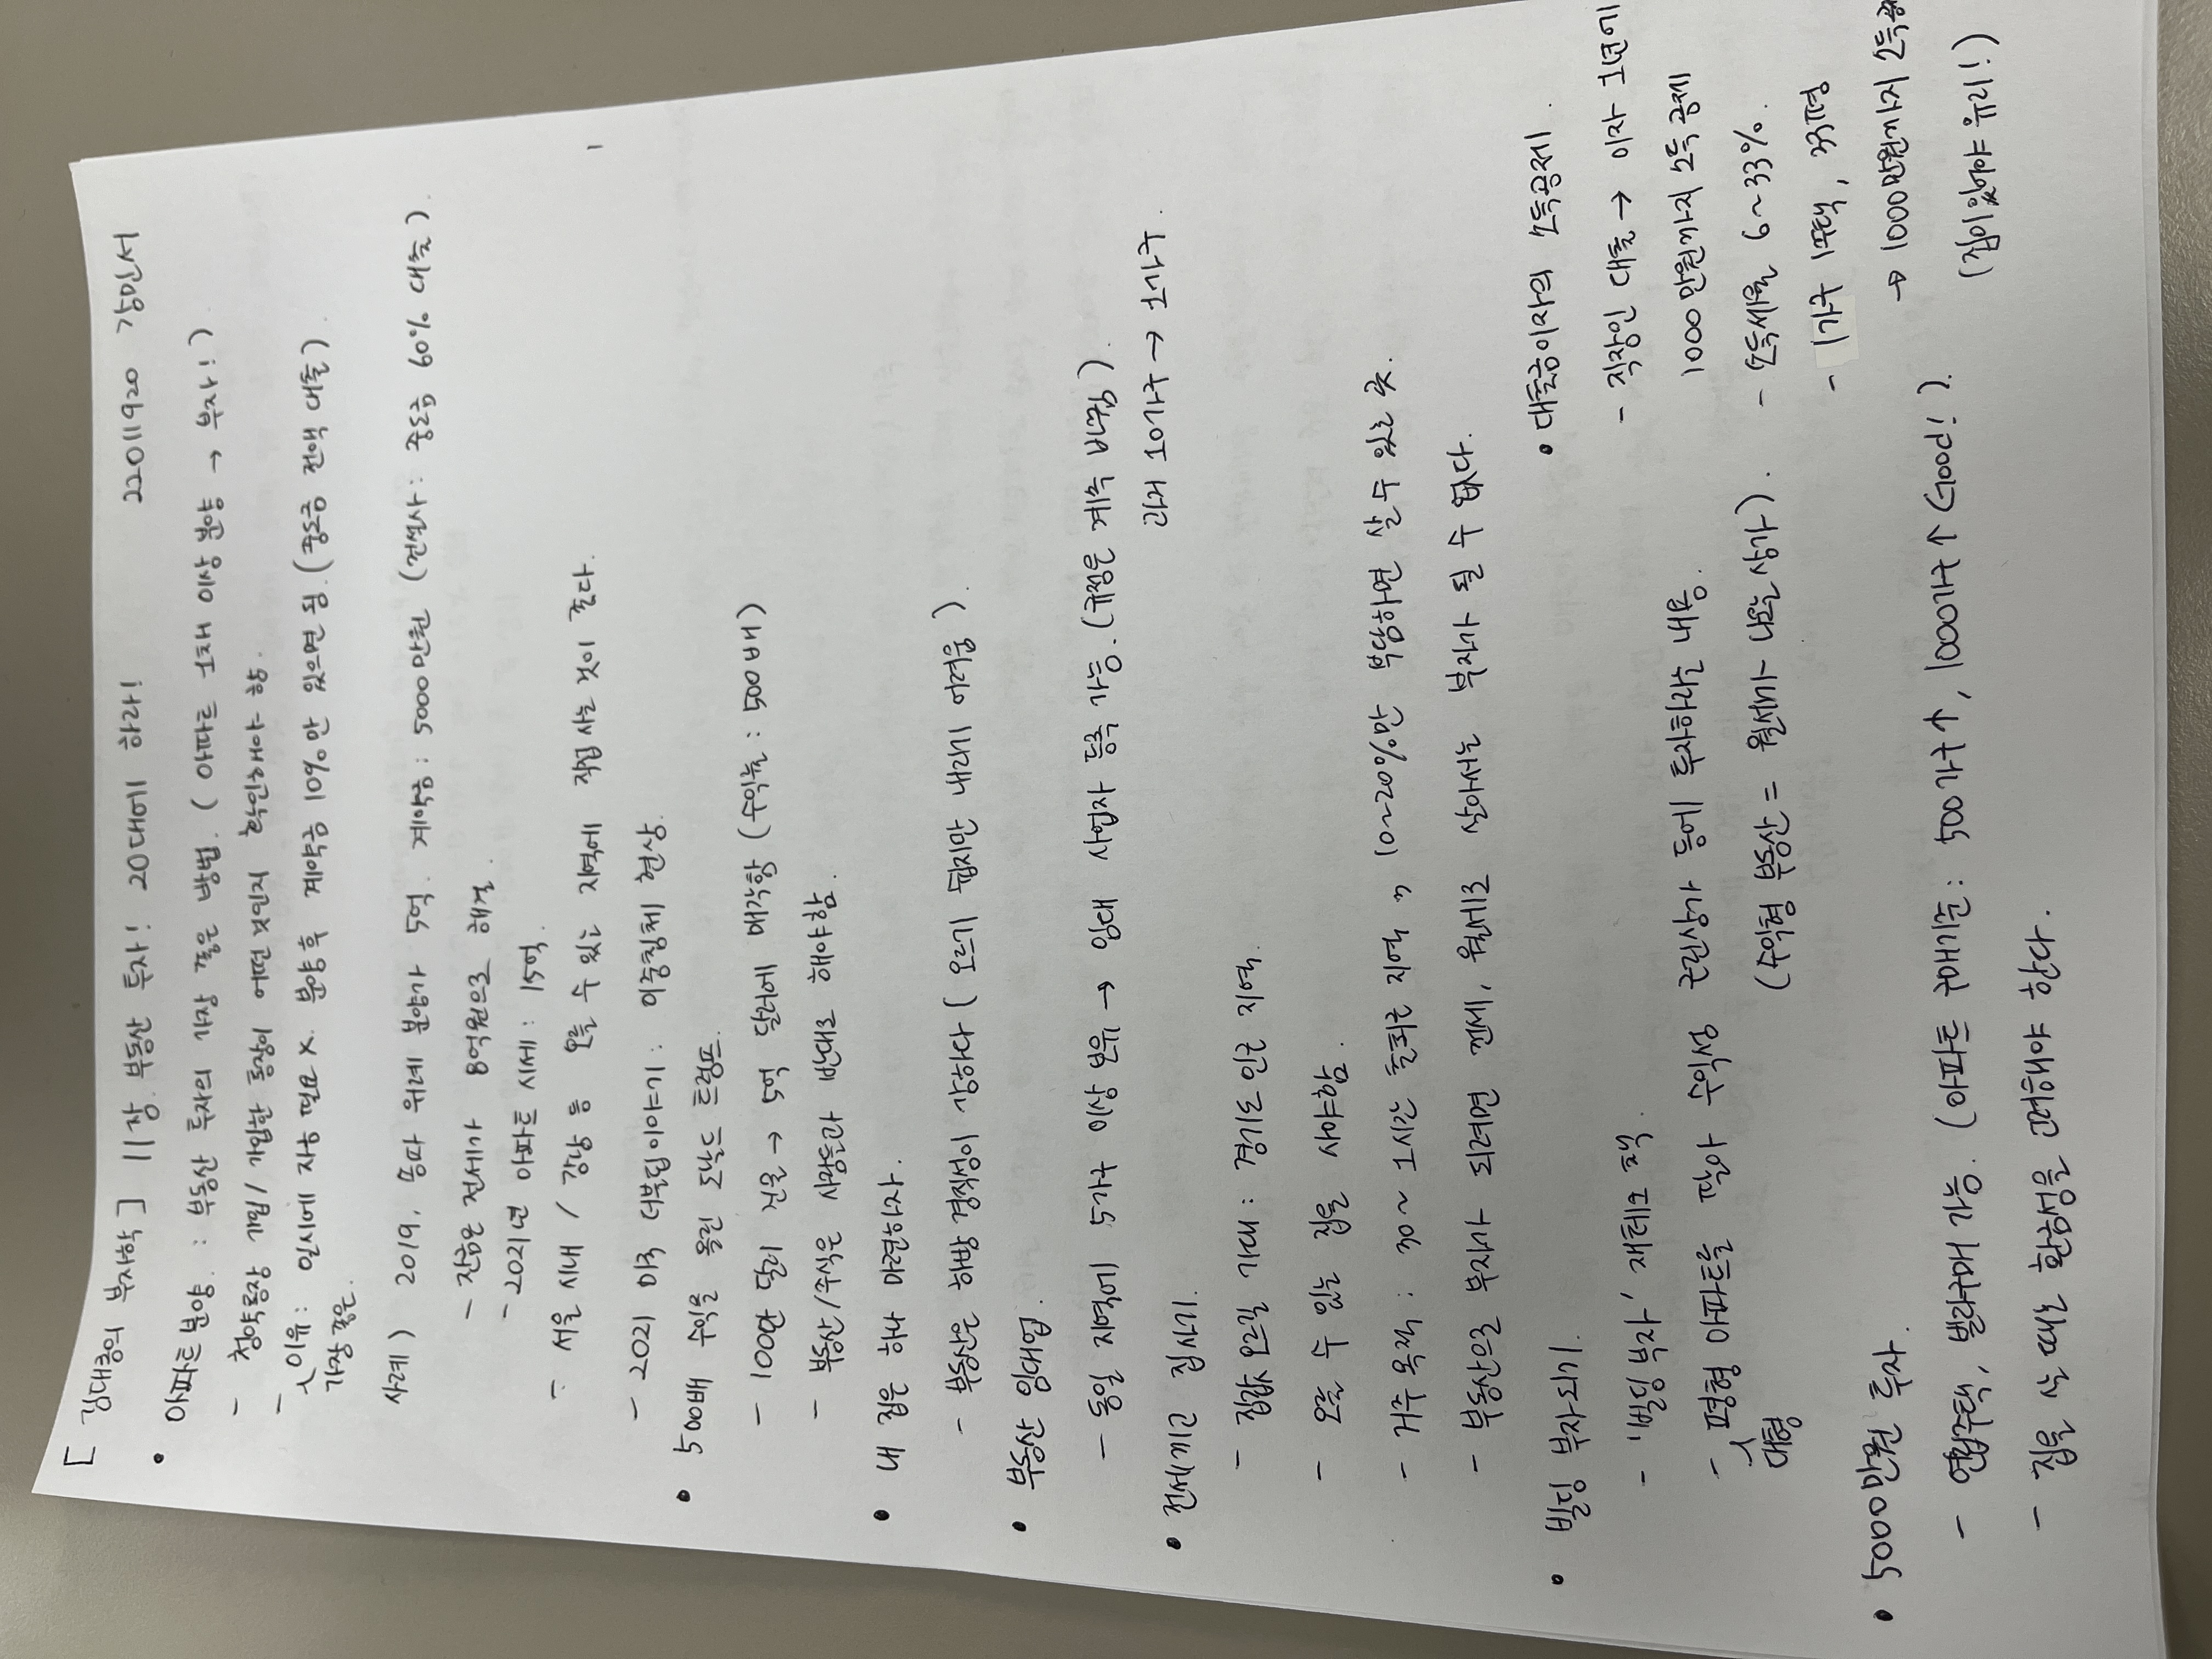 [ 김대중의 부자학 ] 11장. 부동산 투자! 20대에 하라! 2201920 강민서
• 아파트 분양 : 부동산 투자의 가장 좋은 방법. ( 아파트 두채 이상 분양 → 부자! )
- 청약통장 가입/ 가입한 통장이 어떤 것인지 확인해야 함.
- 이유 : 일시에 자금 필요 X. 분양 후 계약금 10%만 있으면 됨. (중도금 전액 대출)
가장 좋은
사례 ) 2019, 송파 위례 분양가 5억. 계약금 : 5000만원 (건설사 : 중도금 60% 대출).
- 잔금은 전세가 8억원으로 해결.
- 2021년 아파트 시세 : 15억.
- 서울 시내 / 강남 등 오를 수 있는 지역에 직접 사는 것이 좋다.
- 2021 미국 더부립이야기 : 이중침체 현상.
• 500배 수익을 올린 도날드 트럼프
- 100만 달러 건물 → 5억 달러에 매각함 (수익률 : 500배)
- 부동산/주식은 사람들과 반대로 해야함.
• 내 집은 하나 마련하자.
- 부동산은 하방 경직성이 강하다 ( 오르기 쉽지만 내리기 어려움 ).
• 부동산 임대업.
- 동일 지역에 5가구 이상 보유 → 임대 사업자 등록 가능. (규정은 계속 바뀜)
과거 10가구 → 5가구.
• 전세끼고 집사기.
- 집값 오르길 기대 : 경기도 인근 지역.
- 오를 수 있는 집을 사야함.
- 거주 목적 : 30~ 1시간 출퇴근 지역 〃 10~20%만 부담하면 살 수 있는 곳.
- 부동산으로 부자가 되려면 전세, 월세로 살아서는 부자가 될 수 없다.
• 빌딩 부자되기.
- '빌딩부자', 재테크 책
- 대형 평형 아파트를 팔아 수익성 근린상가 등에 투자하라는 내용.
(수익형 부동산 = 월세가 나오는 상가).
• 대출금이자의 소득공제
- 직장인 대출 → 이자 1년에
1000만원까지 소득 공제
- 소득세율 6~33%.
- 1가구 1주택, 33평형
→ 1000만원까지 소득
(집이 있어야 유리!)
• 5000만원 투자.
- 연립주택, 빌라구매 가능. (아파트 구매기준 : 500가구↑, 1000가구↑ Good! ).
- 집을 살 때는 환금성을 고려해야 한다.